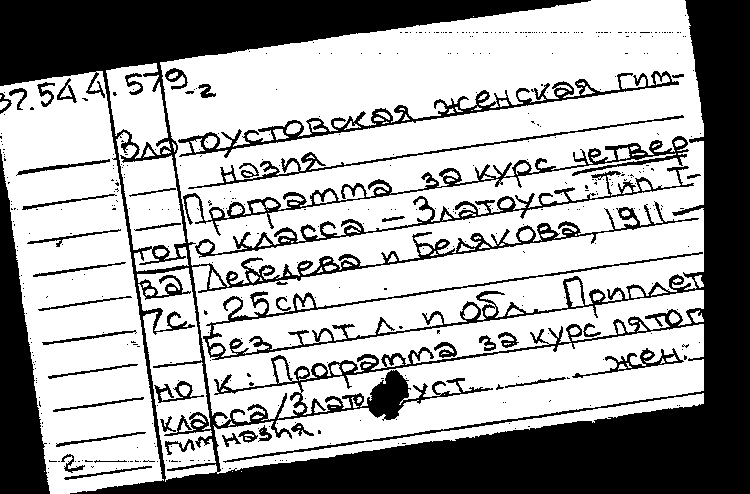 37.54.4.579-2
Златоустовская женская гим-
назия.
Программа за курс четвер-
того класса. - Златоуст: Тип. Т-
ва Лебедева и Белякова, 1911 -
7с.; 25см
Без тит. л. и обл. Приплет
но к: Программа за курс пятог
класса/Златоуст........ жен.
гимназия.
2